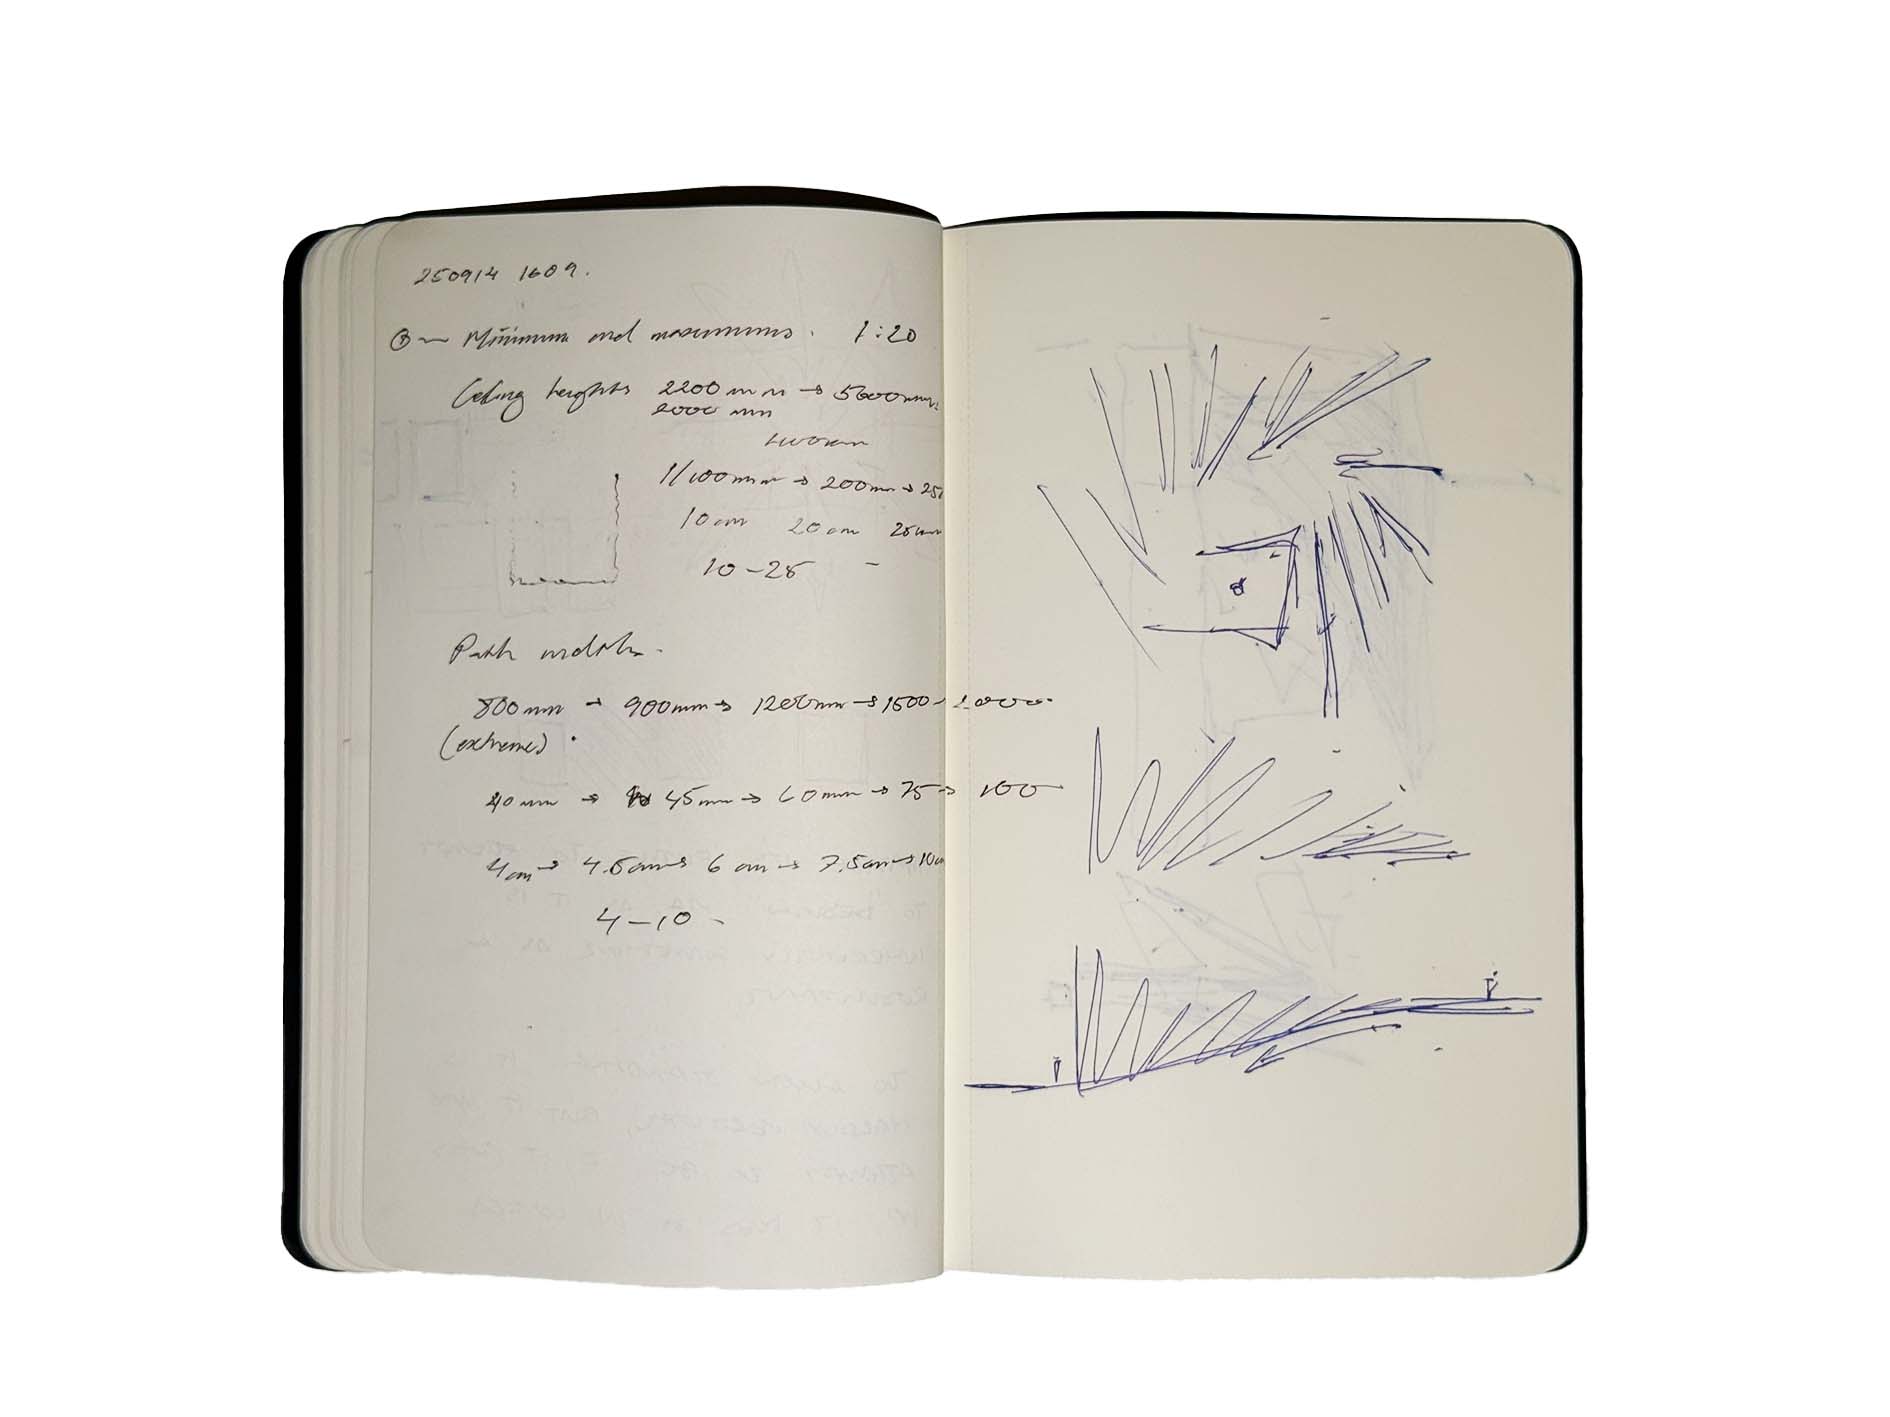 250914 1609.
Minimum and maximums. 1:20
Ceiling heights 2200mm → 5000mm
2000 mm
100mm → 200mm → 250
10cm 20cm 25cm
10-25 -
Path widths.
800mm → 900mm → 1200mm → 1500 → 2000
(extreme).
40mm → 45mm → 60mm → 75 → 100
4cm → 4.5cm → 6 cm → 7.5cm → 10cm
4-10 -